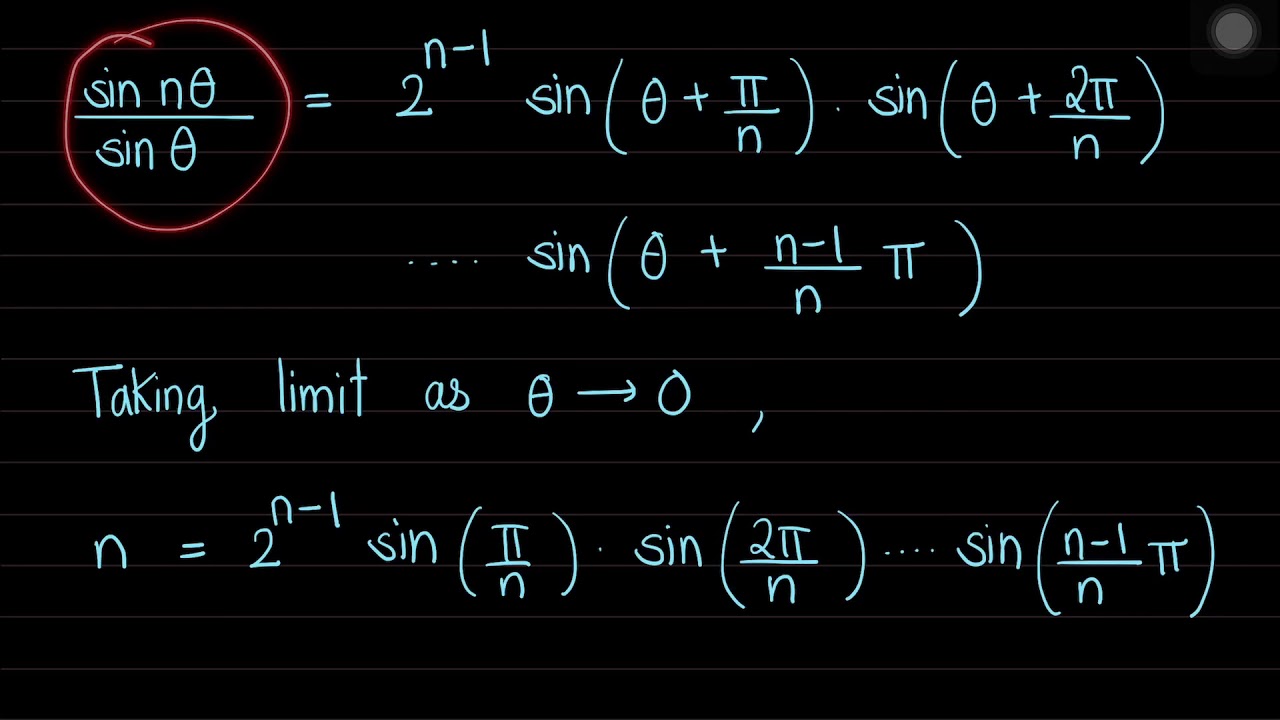 sin nθ / sin θ = 2^(n-1) sin(θ + π/n) · sin(θ + 2π/n)
.... sin(θ + (n-1)/n π)
Taking limit as θ → 0 ,
n = 2^(n-1) sin(π/n) · sin(2π/n) .... sin((n-1)/n π)